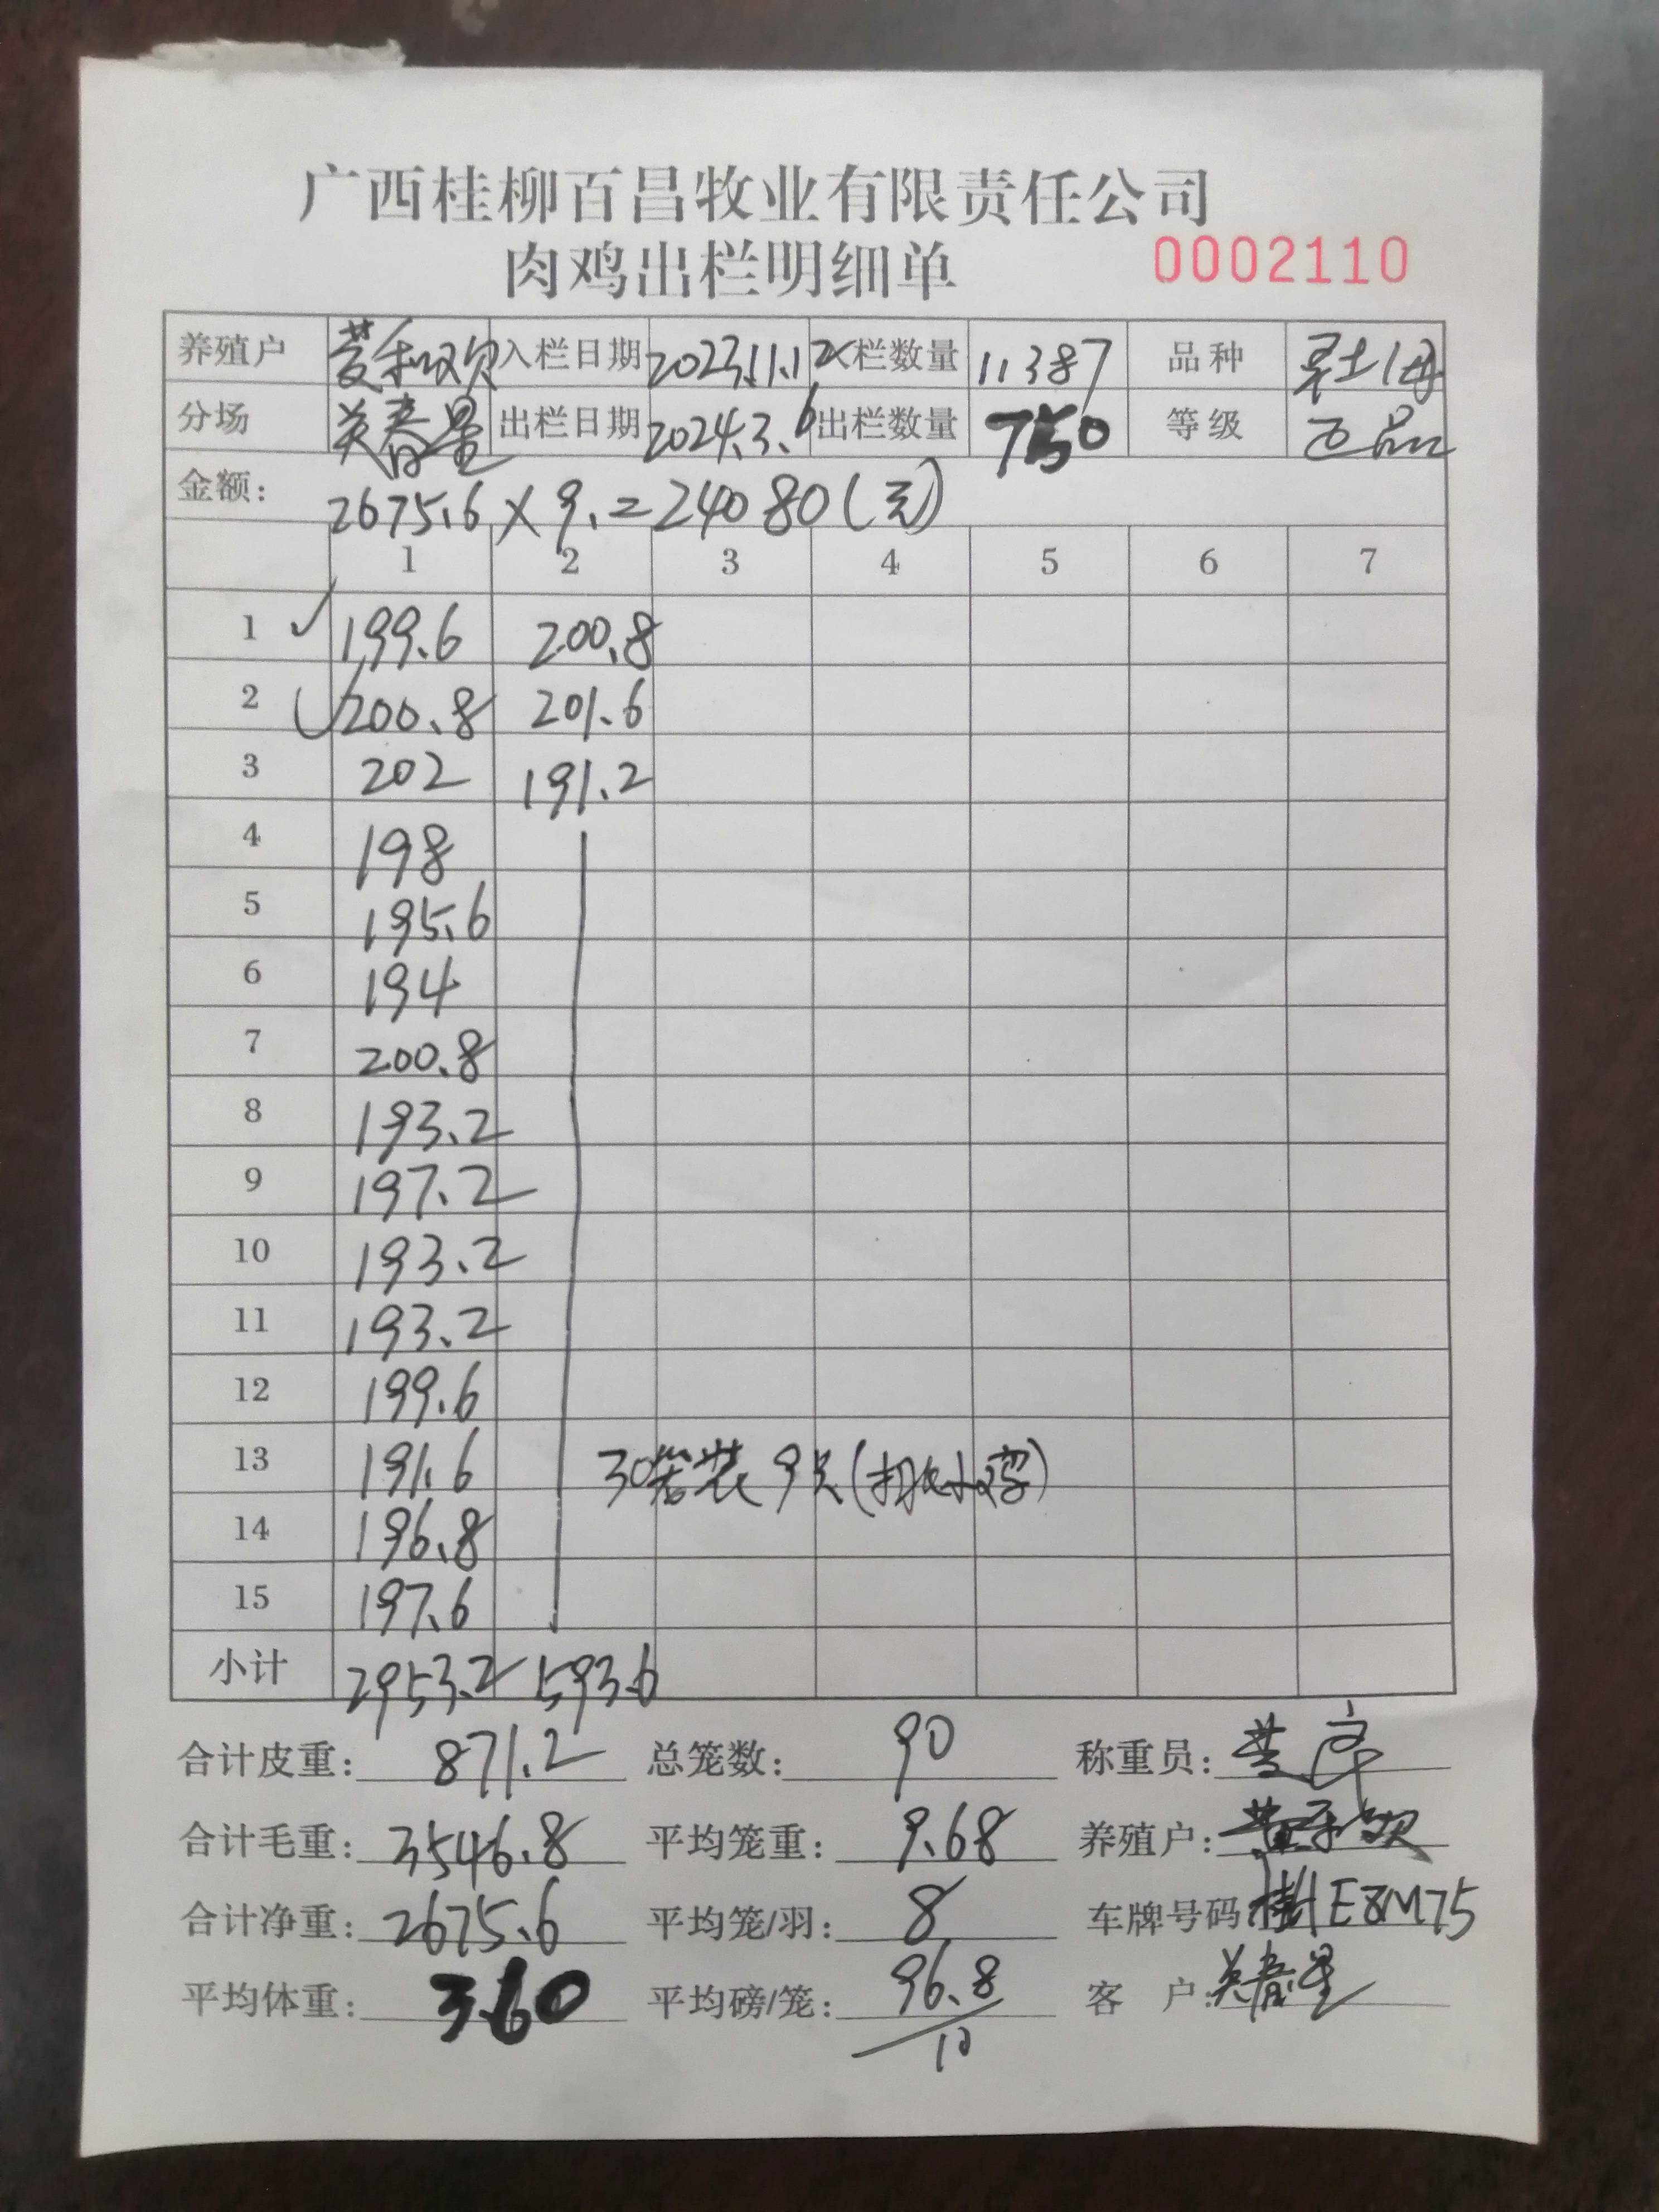 广西桂柳百昌牧业有限责任公司
肉鸡出栏明细单 0002110
养殖户 入栏日期 2023.11.12 入栏数量 11387 品种
分场 吴春星 出栏日期 2024.3.6 出栏数量 750 等级 正品
金额: 2675.6 × 9. = 24080 (元)
1 2 3 4 5 6 7
1 199.6 200.8
2 200.8 201.6
3 202 191.2
4 198
5 195.6
6 194
7 200.8
8 193.2
9 197.2
10 193.2
11 193.2
12 199.6
13 191.6 30笼装9只
14 196.8
15 197.6
小计 2953.2 593.6
合计皮重: 871.2 总笼数: 90 称重员:
合计毛重: 3546.8 平均笼重: 9.68 养殖户:
合计净重: 2675.6 平均笼/羽: 8 车牌号码: 桂E8M75
平均体重: 3.60 平均磅/笼: 96.8/10 客 户: 吴春星